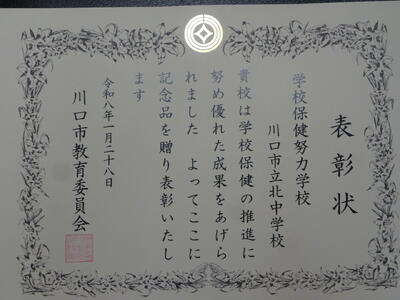 表彰状
学校保健努力学校
川口市立北中学校
貴校は学校保健の推進に
努め優れた成果をあげら
れました　よってここに
記念品を贈り表彰いたし
ます
令和八年一月二十八日
川口市教育委員会